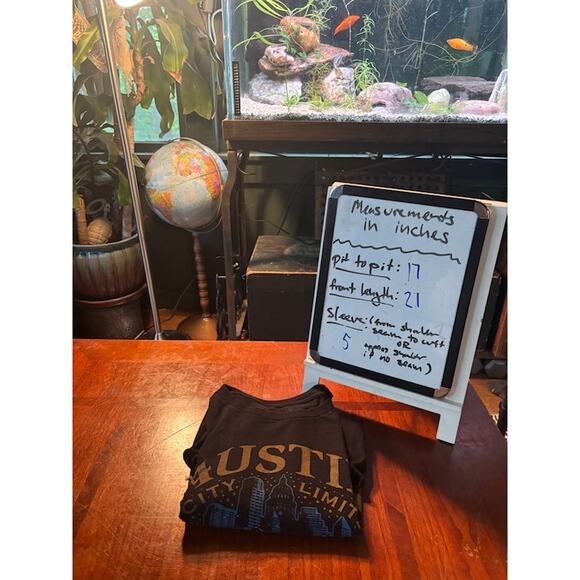 Measurements
in inches
pit to pit: 17
front length: 21
Sleeve: (from shoulder
seam to cuff
OR
5 approx shoulder
if no seam)
AUSTI
CITY LIMIT